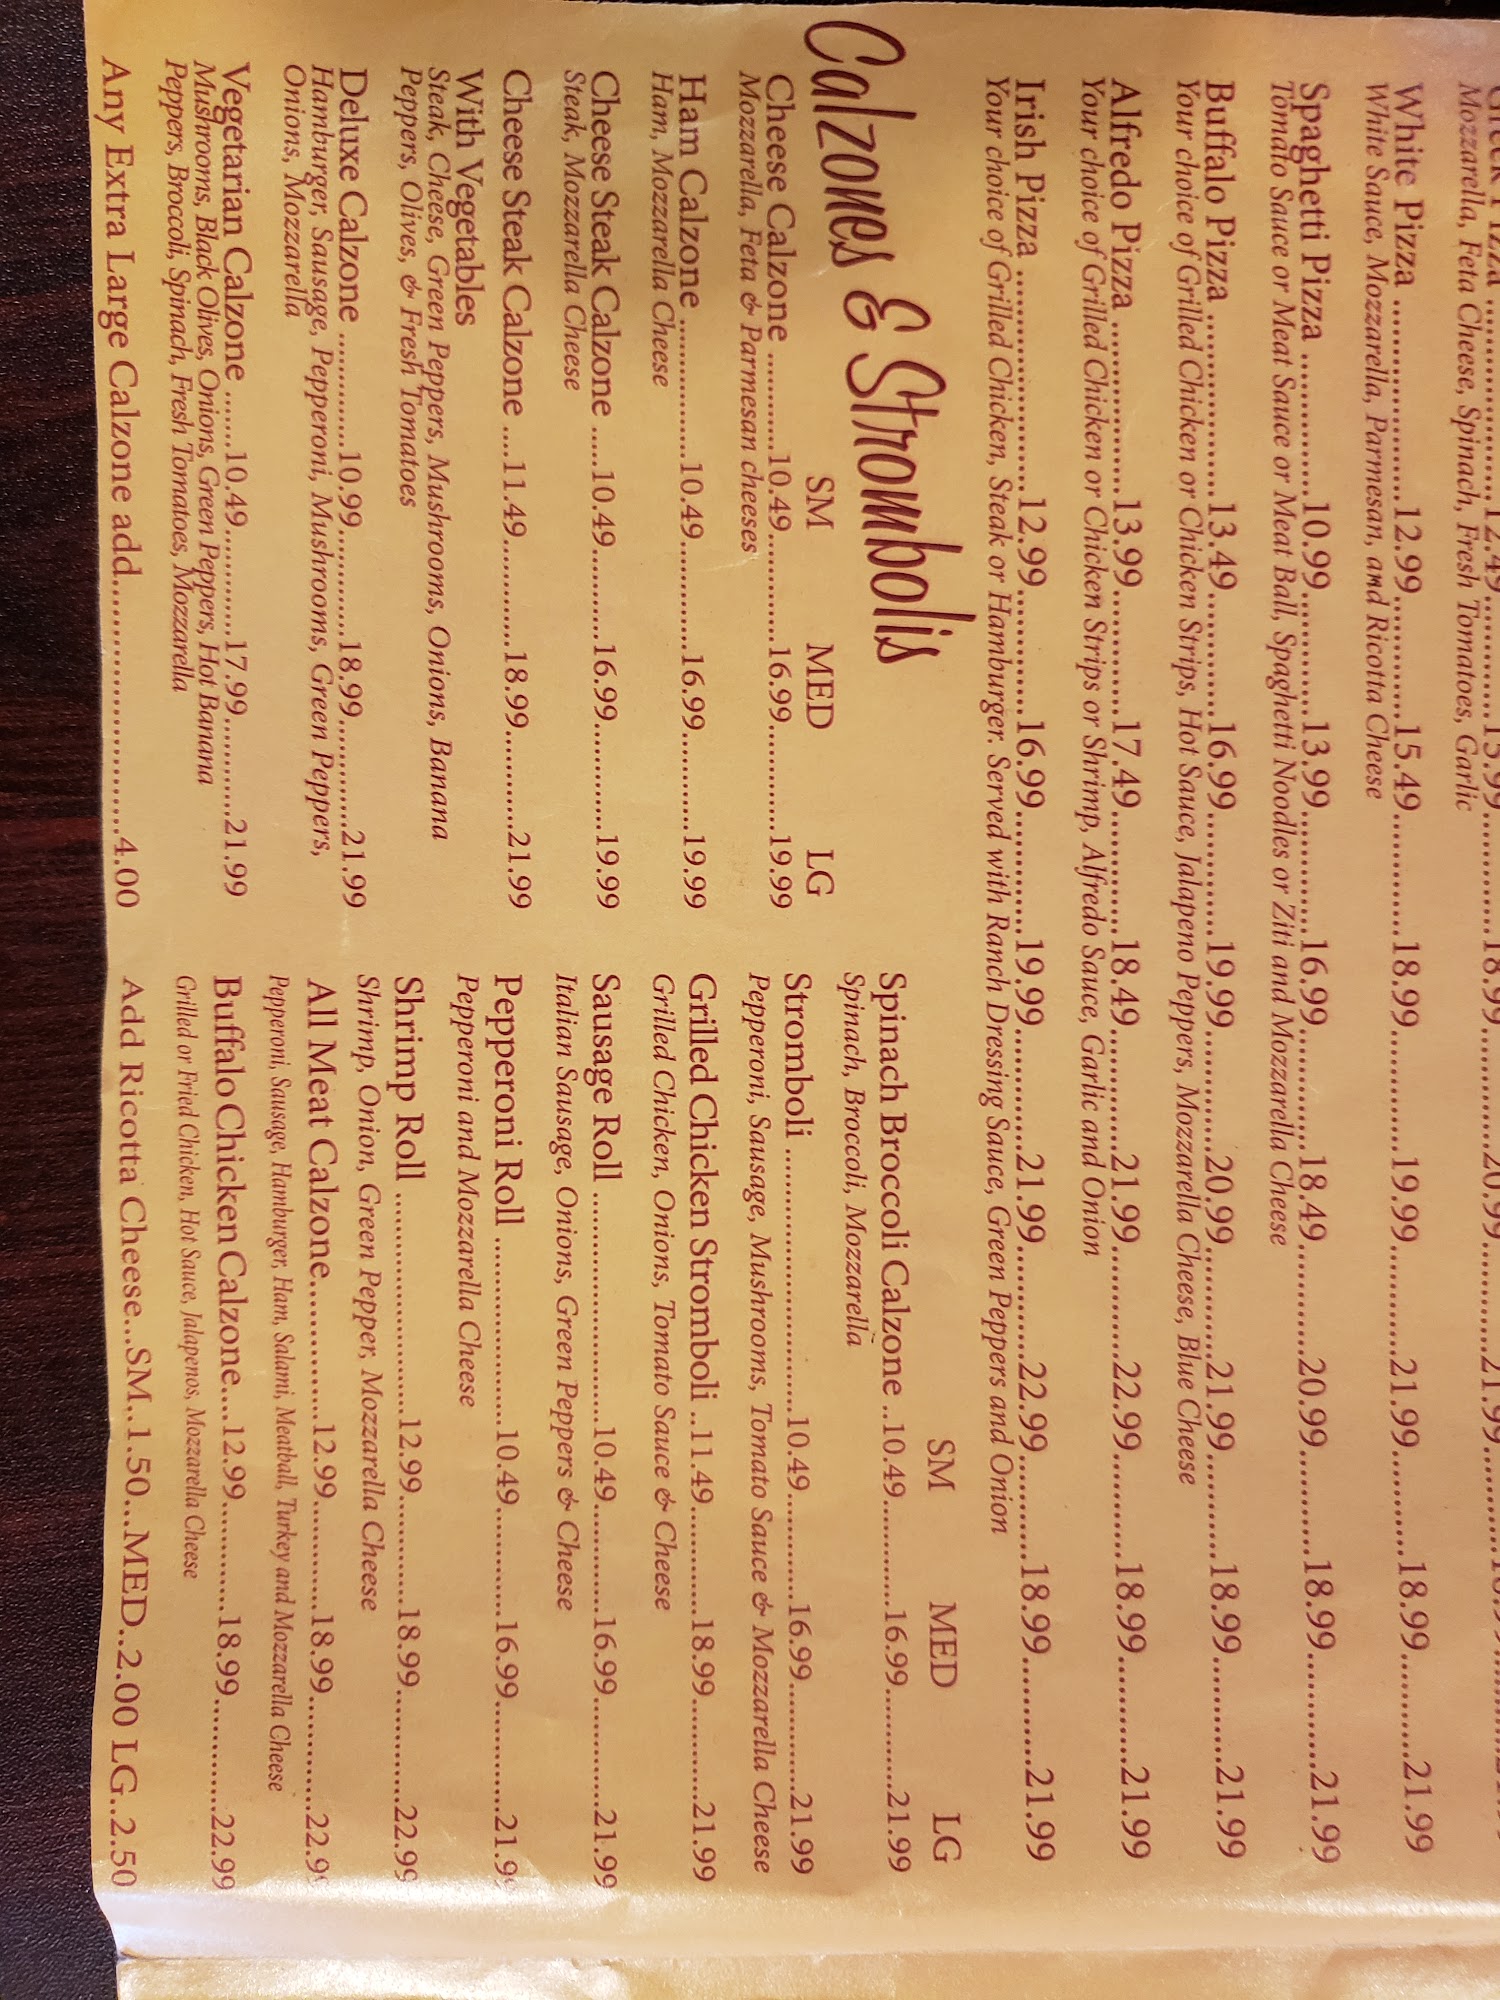 Mozzarella, Feta Cheese, Spinach, Fresh Tomatoes, Garlic
White Pizza ......................12.99............15.49............18.99............19.99............21.99............18.99............21.99
White Sauce, Mozzarella, Parmesan, and Ricotta Cheese
Spaghetti Pizza ..............10.99............13.99............16.99............18.49............20.99............18.99............21.99
Tomato Sauce or Meat Sauce or Meat Ball, Spaghetti Noodles or Ziti and Mozzarella Cheese
Buffalo Pizza ..................13.49............16.99............19.99............20.99............21.99............18.99............21.99
Your choice of Grilled Chicken or Chicken Strips, Hot Sauce, Jalapeno Peppers, Mozzarella Cheese, Blue Cheese
Alfredo Pizza ..................13.99............17.49............18.49............21.99............22.99............18.99............21.99
Your choice of Grilled Chicken or Chicken Strips or Shrimp, Alfredo Sauce, Garlic and Onion
Irish Pizza ......................12.99............16.99............19.99............21.99............22.99............18.99............21.99
Your choice of Grilled Chicken, Steak or Hamburger. Served with Ranch Dressing Sauce, Green Peppers and Onion
Calzones & Strombolis
SM MED LG
Cheese Calzone ..........10.49............16.99............19.99
Mozzarella, Feta & Parmesan cheeses
Ham Calzone ..............10.49............16.99............19.99
Ham, Mozzarella Cheese
Cheese Steak Calzone ....10.49..........16.99............19.99
Steak, Mozzarella Cheese
Cheese Steak Calzone ....11.49............18.99..........21.99
With Vegetables
Steak, Cheese, Green Peppers, Mushrooms, Onions, Banana
Peppers, Olives, & Fresh Tomatoes
Deluxe Calzone ............10.99............18.99..........21.99
Hamburger, Sausage, Pepperoni, Mushrooms, Green Peppers,
Onions, Mozzarella
Vegetarian Calzone ......10.49............17.99..........21.99
Mushrooms, Black Olives, Onions, Green Peppers, Hot Banana
Peppers, Broccoli, Spinach, Fresh Tomatoes, Mozzarella
Any Extra Large Calzone add..........................4.00
SM MED LG
Spinach Broccoli Calzone ..10.49............16.99..........21.99
Spinach, Broccoli, Mozzarella
Stromboli ............................10.49............16.99..........21.99
Pepperoni, Sausage, Mushrooms, Tomato Sauce & Mozzarella Cheese
Grilled Chicken Stromboli ..11.49............18.99..........21.99
Grilled Chicken, Onions, Tomato Sauce & Cheese
Sausage Roll ........................10.49............16.99..........21.99
Italian Sausage, Onions, Green Peppers & Cheese
Pepperoni Roll ....................10.49............16.99..........21.99
Pepperoni and Mozzarella Cheese
Shrimp Roll ........................12.99............18.99..........22.99
Shrimp, Onion, Green Pepper, Mozzarella Cheese
All Meat Calzone..............12.99............18.99..........22.99
Pepperoni, Sausage, Hamburger, Ham, Salami, Meatball, Turkey and Mozzarella Cheese
Buffalo Chicken Calzone....12.99..........18.99..........22.99
Grilled or Fried Chicken, Hot Sauce, Jalapenos, Mozzarella Cheese
Add Ricotta Cheese...SM..1.50...MED..2.00 LG..2.50